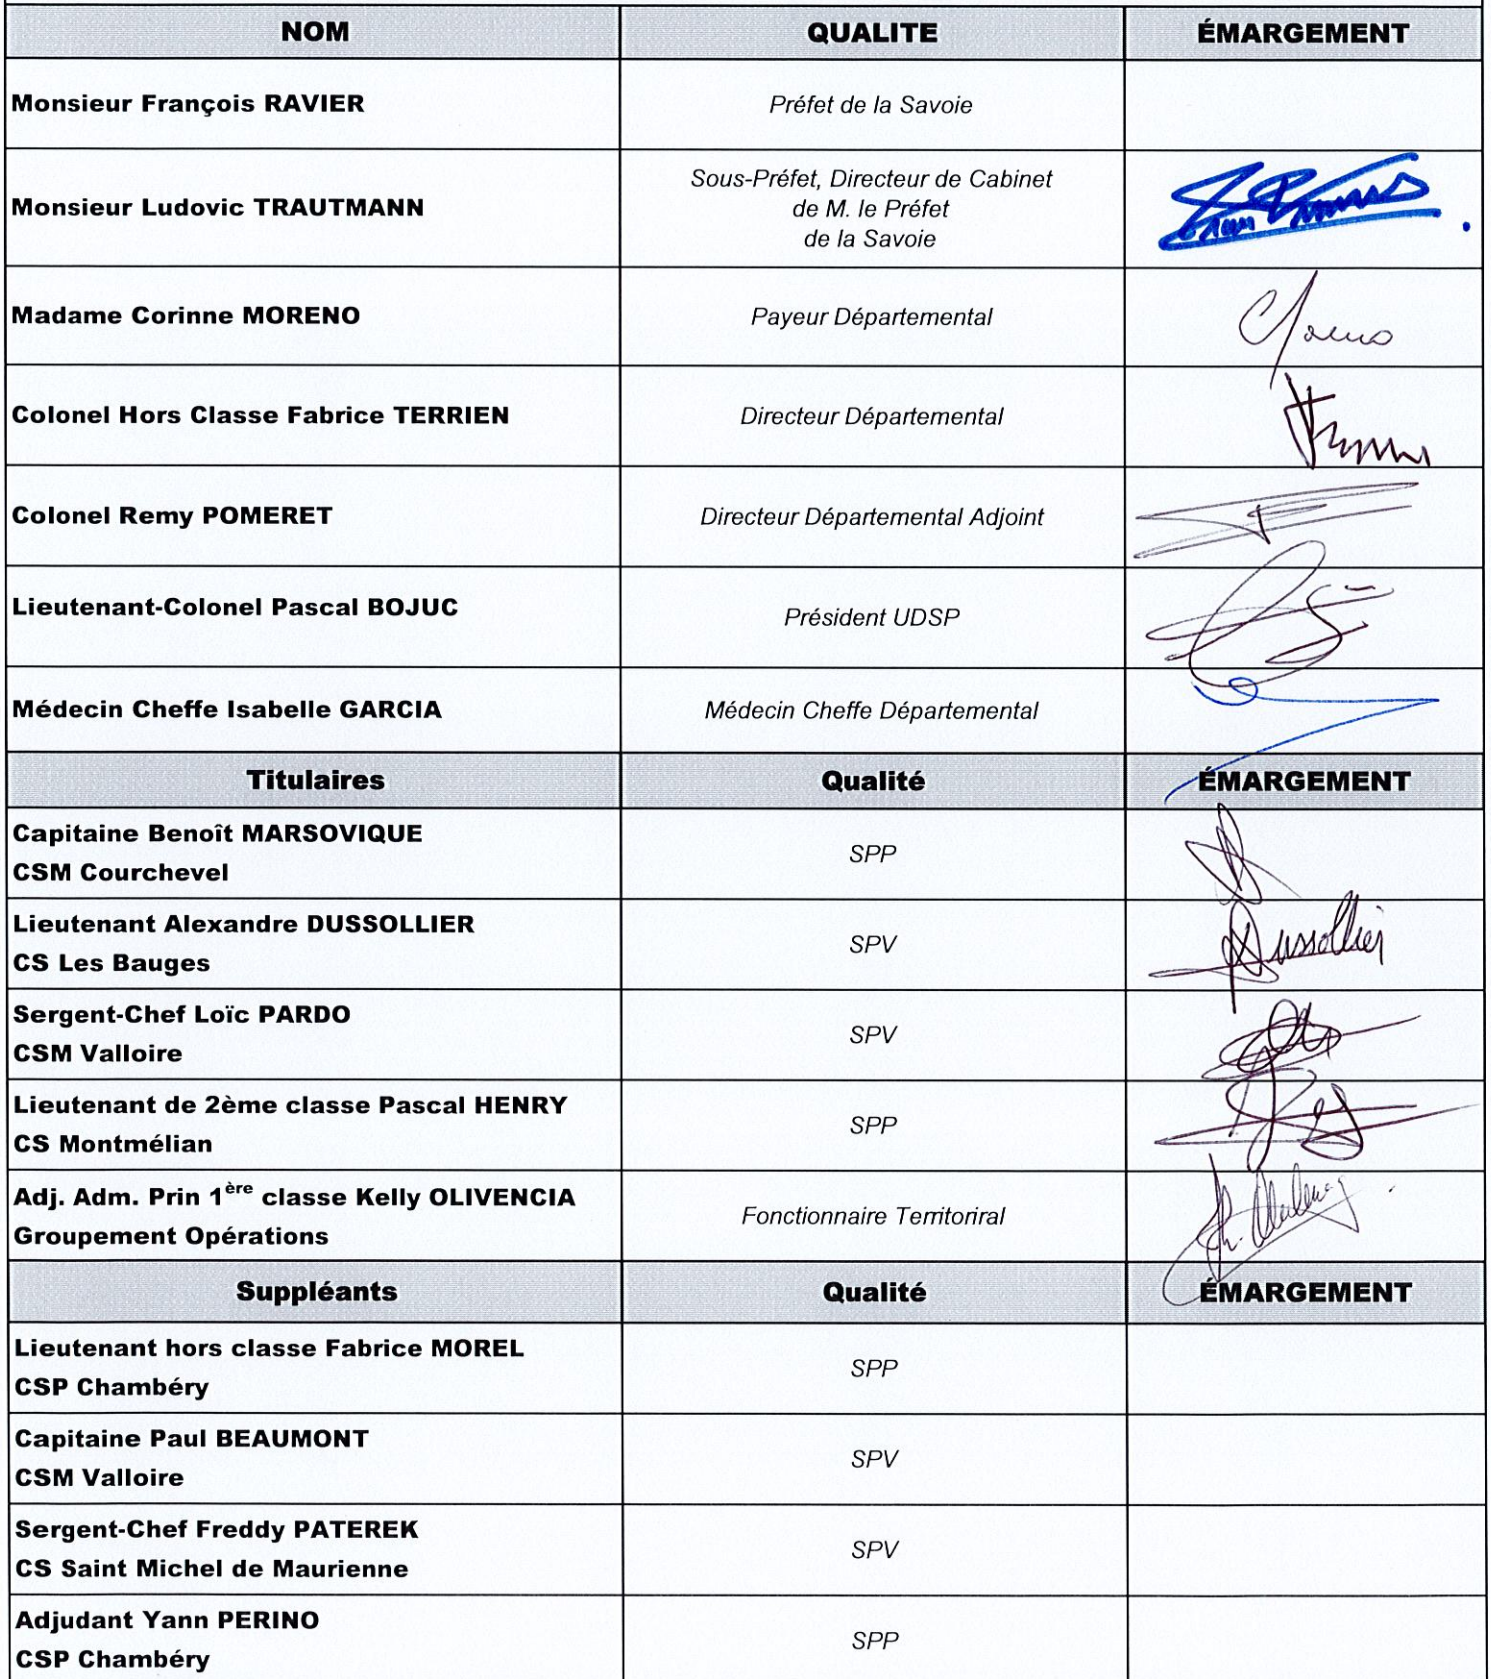 NOM QUALITE ÉMARGEMENT
Monsieur François RAVIER Préfet de la Savoie
Monsieur Ludovic TRAUTMANN Sous-Préfet, Directeur de Cabinet
de M. le Préfet
de la Savoie
Madame Corinne MORENO Payeur Départemental
Colonel Hors Classe Fabrice TERRIEN Directeur Départemental
Colonel Remy POMERET Directeur Départemental Adjoint
Lieutenant-Colonel Pascal BOJUC Président UDSP
Médecin Cheffe Isabelle GARCIA Médecin Cheffe Départemental
Titulaires Qualité ÉMARGEMENT
Capitaine Benoît MARSOVIQUE
CSM Courchevel
SPP
Lieutenant Alexandre DUSSOLLIER
CS Les Bauges
SPV
Dussollier
Sergent-Chef Loïc PARDO
CSM Valloire
SPV
Lieutenant de 2ème classe Pascal HENRY
CS Montmélian
SPP
Adj. Adm. Prin 1ère classe Kelly OLIVENCIA
Groupement Opérations
Fonctionnaire Territoriral
Suppléants Qualité ÉMARGEMENT
Lieutenant hors classe Fabrice MOREL
CSP Chambéry
SPP
Capitaine Paul BEAUMONT
CSM Valloire
SPV
Sergent-Chef Freddy PATEREK
CS Saint Michel de Maurienne
SPV
Adjudant Yann PERINO
CSP Chambéry
SPP